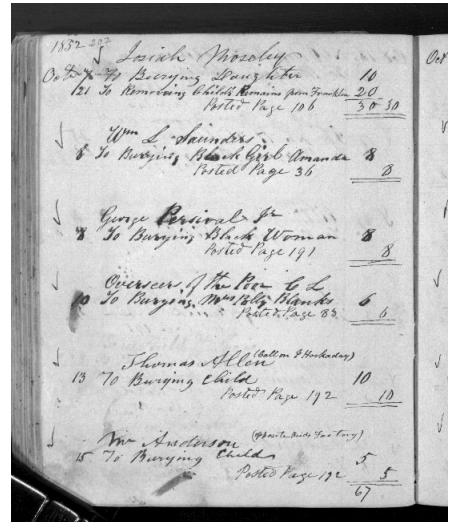 1852 207
Josiah Moseley
Oct 7 To Burying Daughter 10
121 To Removing Child's Remains from Franklin 20
Posted Page 106 30 30
Wm L. Saunders
8 To Burying Black Girl Amanda 8
Posted Page 36 8
George Percival Jr
8 To Burying Black Woman 8
Posted Page 191 8
Overseers of the Poor C L
10 To Burying Mrs Polly Blanks 6
Posted Page 83 6
Thomas Allen (Callon & Hockaday)
13 To Burying Child 10
Posted Page 192 10
Mr Anderson Factory)
15 To Burying Child 5
Posted Page 192 5
67
Oct